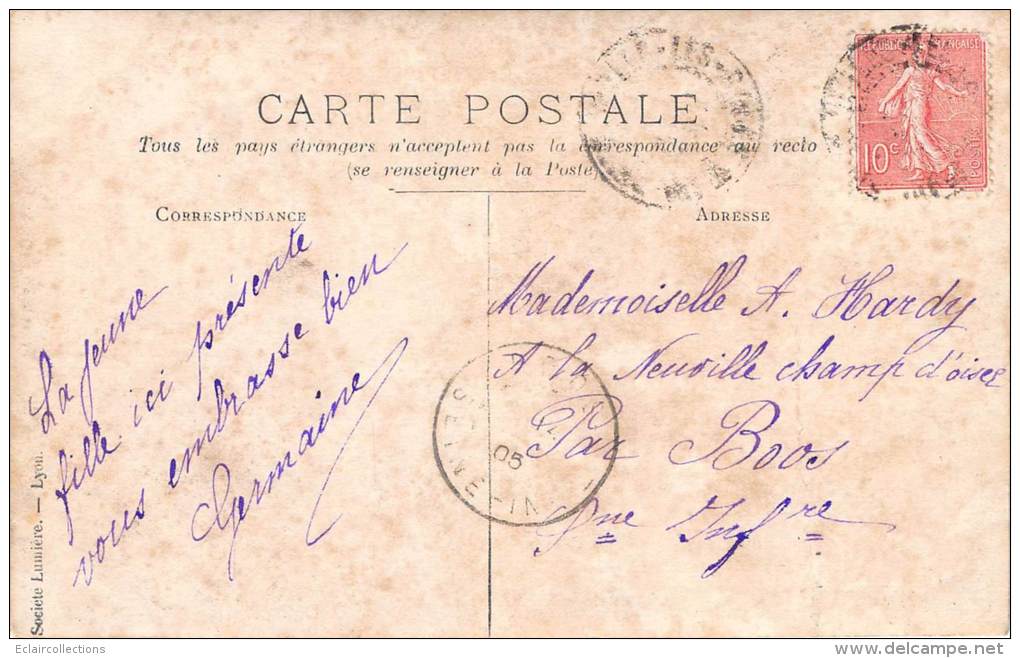 CARTE POSTALE
Tous les pays étrangers n'acceptent pas la correspondance au recto
(se renseigner à la Poste)
CORRESPONDANCE
ADRESSE
REPUBLIQUE FRANÇAISE
10 c
POSTES
La jeune
fille ici présente
vous embrasse bien
Germaine
Mademoiselle A. Hardy
A la Neuville champ d'oisel
Par Boos
Sne Infre
05
Société Lumière. — Lyon.
Eclaircollections
www.delcampe.net